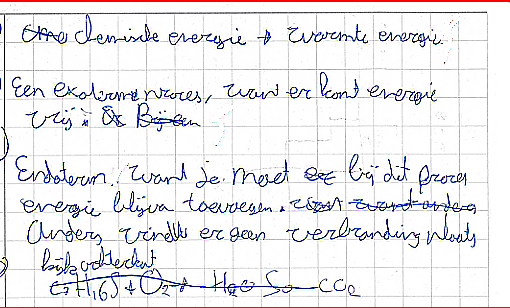 chemische energie → warmte energie.
Een exotherm proces, want er komt energie
vrij.
Endoterm, want je moet bij dit proces
energie blijven toevoegen.
Anders vindt er geen verbranding plaats
C7H16S + O2 → H2O SO CO2